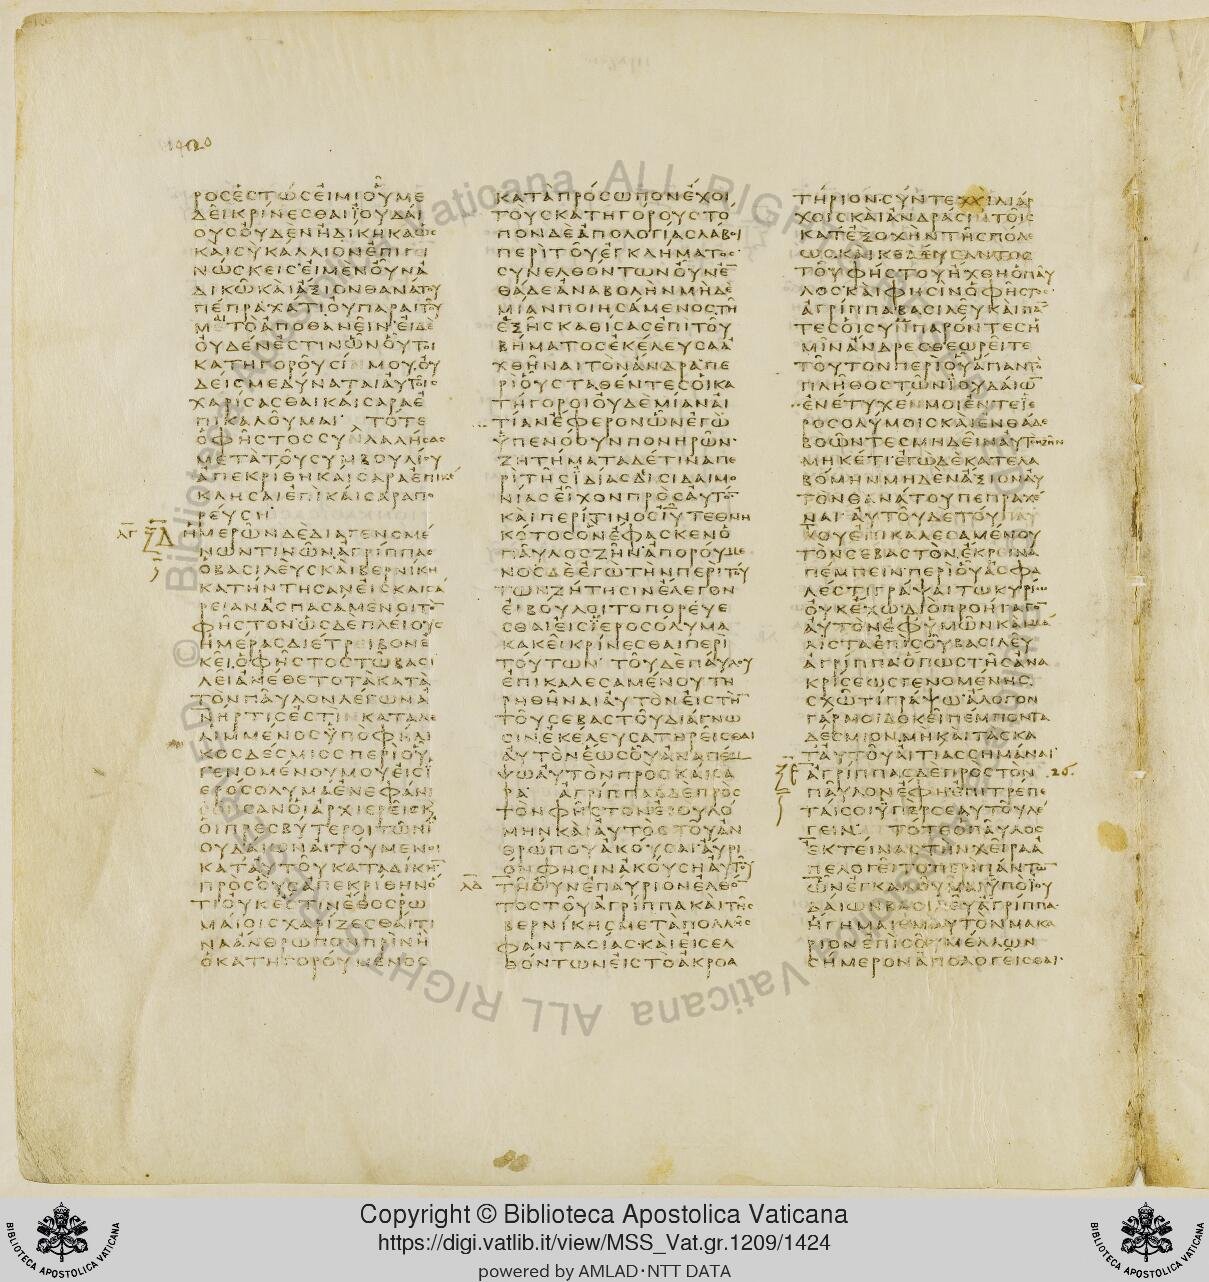 1420
ΡΟΣΕΣΤΩΣΕΙΜΙΟΥΜΕ
ΔΕΙΚΡΙΝΕΣΘΑΙΙΟΥΔΑΙ
ΟΥΣΟΥΔΕΝΗΔΙΚΗΚΑΩΣ
ΚΑΙΣΥΚΑΛΛΙΟΝΕΠΙΓΕΙ
ΝΩΣΚΕΙΣΕΙΜΕΝΟΥΝΑ
ΔΙΚΩΚΑΙΑΞΙΟΝΘΑΝΑΤΟΥ
ΠΕΠΡΑΧΑΤΙΟΥΠΑΡΑΙΤΟΥ
ΜΕΤΟΑΠΟΘΑΝΕΙΝΕΙΔΕ
ΟΥΔΕΝΕΣΤΙΝΩΝΟΥΤΟΙ
ΚΑΤΗΓΟΡΟΥΣΙ ΜΟΥΟΥ
ΔΕΙΣΜΕΔΥΝΑΤΑΙΑΥΤΟΙΣ
ΧΑΡΙΣΑΣΘΑΙΚΑΙΣΑΡΑΕ
ΠΙΚΑΛΟΥΜΑΙ ΤΟΤΕ
ΟΦΗΣΤΟΣΣΥΝΛΑΛΗΣΑΣ
ΜΕΤΑΤΟΥΣΥΜΒΟΥΛΙΟΥ
ΑΠΕΚΡΙΘΗΚΑΙΣΑΡΑΕΠΙΚΕ
ΚΛΗΣΑΙΕΠΙΚΑΙΣΑΡΑΠΟ
ΡΕΥΣΗ
ΗΜΕΡΩΝΔΕΔΙΑΓΕΝΟΜΕ
ΝΩΝΤΙΝΩΝΑΓΡΙΠΠΑΣ
ΟΒΑΣΙΛΕΥΣΚΑΙΒΕΡΝΙΚΗ
ΚΑΤΗΝΤΗΣΑΝΕΙΣΚΑΙΣΑ
ΡΕΙΑΝΑΣΠΑΣΑΜΕΝΟΙΤΟ
ΦΗΣΤΟΝΩΣΔΕΠΛΕΙΟΥΣ
ΗΜΕΡΑΣΔΙΕΤΡΕΙΒΟΝΕ
ΚΕΙΟΦΗΣΤΟΣΤΩΒΑΣΙ
ΛΕΙΑΝΕΘΕΤΟΤΑΚΑΤΑ
ΤΟΝΠΑΥΛΟΝΛΕΓΩΝΑ
ΝΗΡΤΙΣΕΣΤΙΝΚΑΤΑΛΕ
ΛΙΜΜΕΝΟΣΥΠΟΦΗΛΙ
ΚΟΣΔΕΣΜΙΟΣΠΕΡΙΟΥ
ΓΕΝΟΜΕΝΟΥΜΟΥΕΙΣΙ
ΕΡΟΣΟΛΥΜΑΕΝΕΦΑΝΙ
ΣΑΝΟΙΑΡΧΙΕΡΕΙΣΚ
ΟΙΠΡΕΣΒΥΤΕΡΟΙΤΩΝΙ
ΟΥΔΑΙΩΝΑΙΤΟΥΜΕΝΟΙ
ΚΑΤΑΥΤΟΥΚΑΤΑΔΙΚΗ
ΠΡΟΣΟΥΣΑΠΕΚΡΙΘΗΝΟ
ΤΙΟΥΚΕΣΤΙΝΕΘΟΣΡΩ
ΜΑΙΟΙΣΧΑΡΙΖΕΣΘΑΙΤΙ
ΝΑΑΝΘΡΩΠΟΝΠΡΙΝΗ
ΟΚΑΤΗΓΟΡΟΥΜΕΝΟΣ
ΚΑΤΑΠΡΟΣΩΠΟΝΕΧΟΙ
ΤΟΥΣΚΑΤΗΓΟΡΟΥΣΤΟ
ΠΟΝΔΕΑΠΟΛΟΓΙΑΣΛΑΒΟΙ
ΠΕΡΙΤΟΥΕΓΚΛΗΜΑΤΟΣ
ΣΥΝΕΛΘΟΝΤΩΝΟΥΝΕ
ΘΑΔΕΑΝΑΒΟΛΗΝΜΗΔΕ
ΜΙΑΝΠΟΙΗΣΑΜΕΝΟΣΤΗ
ΕΞΗΣΚΑΘΙΣΑΣΕΠΙΤΟΥ
ΒΗΜΑΤΟΣΕΚΕΛΕΥΣΑΑ
ΧΘΗΝΑΙΤΟΝΑΝΔΡΑΠΕ
ΡΙΟΥΣΤΑΘΕΝΤΕΣΟΙΚΑ
ΤΗΓΟΡΟΙΟΥΔΕΜΙΑΝΑΙ
ΤΙΑΝΕΦΕΡΟΝΩΝΕΓΩ
ΥΠΕΝΟΟΥΝΠΟΝΗΡΩΝ
ΖΗΤΗΜΑΤΑΔΕΤΙΝΑΠΕ
ΡΙΤΗΣΙΔΙΑΣΔΙΣΙΔΑΙΜΟ
ΝΙΑΣΕΙΧΟΝΠΡΟΣΑΥΤΟ
ΚΑΙΠΕΡΙΤΙΝΟΣΙΥΤΕΘΝΗ
ΚΟΤΟΣΟΝΕΦΑΣΚΕΝΟ
ΠΑΥΛΟΣΖΗΝΑΠΟΡΟΥΜΕ
ΝΟΣΔΕΕΓΩΤΗΝΠΕΡΙΤΟΥ
ΤΩΝΖΗΤΗΣΙΝΕΛΕΓΟΝ
ΕΙΒΟΥΛΟΙΤΟΠΟΡΕΥΕ
ΣΘΑΙΕΙΣΙΕΡΟΣΟΛΥΜΑ
ΚΑΚΕΙΚΡΙΝΕΣΘΑΙΠΕΡΙ
ΤΟΥΤΩΝ ΤΟΥΔΕΠΑΥΛΟΥ
ΕΠΙΚΑΛΕΣΑΜΕΝΟΥΤΗ
ΡΗΘΗΝΑΙΑΥΤΟΝΕΙΣΤΗ
ΤΟΥΣΕΒΑΣΤΟΥΔΙΑΓΝΩ
ΣΙΝΕΚΕΛΕΥΣΑΤΗΡΕΙΣΘΑΙ
ΑΥΤΟΝΕΩΣΟΥΑΝΑΠΕΜ
ΨΩΑΥΤΟΝΠΡΟΣΚΑΙΣΑ
ΡΑ ΑΓΡΙΠΠΑΣΔΕΠΡΟΣ
ΤΟΝΦΗΣΤΟΝΕΒΟΥΛΟ
ΜΗΝΚΑΙΑΥΤΟΣΤΟΥΑΝ
ΘΡΩΠΟΥΑΚΟΥΣΑΙΑΥΡΙ
ΟΝΦΗΣΙΝΑΚΟΥΣΗΑΥΤΟΥ
ΤΗΟΥΝΕΠΑΥΡΙΟΝΕΛΘΟ
ΤΟΣΤΟΥΑΓΡΙΠΠΑΚΑΙΤΗΣ
ΒΕΡΝΙΚΗΣΜΕΤΑΠΟΛΛΗΣ
ΦΑΝΤΑΣΙΑΣΚΑΙΕΙΣΕΛ
ΘΟΝΤΩΝΕΙΣΤΟΑΚΡΟΑ
ΤΗΡΙΟΝΣΥΝΤΕΧΙΛΙΑΡ
ΧΟΙΣΚΑΙΑΝΔΡΑΣΙΤΟΙΣ
ΚΑΤΕΞΟΧΗΝΤΗΣΠΟΛΕ
ΩΣΚΑΙΚΕΛΕΥΣΑΝΤΟΣ
ΤΟΥΦΗΣΤΟΥΗΧΘΗΟΠΑΥ
ΛΟΣΚΑΙΦΗΣΙΝΟΦΗΣΤΟΣ
ΑΓΡΙΠΠΑΒΑΣΙΛΕΥΚΑΙΠΑ
ΤΕΣΟΙΣΥΠΑΡΟΝΤΕΣΗ
ΜΙΝΑΝΔΡΕΣΘΕΩΡΕΙΤΕ
ΤΟΥΤΟΝΠΕΡΙΟΥΑΠΑΝΤΟ
ΠΛΗΘΟΣΤΩΝΙΟΥΔΑΙΩ
ΕΝΕΤΥΧΕΝΜΟΙΕΝΤΕΙΕ
ΡΟΣΟΛΥΜΟΙΣΚΑΙΕΝΘΑΔΕ
ΒΟΩΝΤΕΣΜΗΔΕΙΝΑΥΤΟΝΖΗΝ
ΜΗΚΕΤΙΕΓΩΔΕΚΑΤΕΛΑ
ΒΟΜΗΝΜΗΔΕΝΑΞΙΟΝΑΥ
ΤΟΝΘΑΝΑΤΟΥΠΕΠΡΑΧΕ
ΝΑΙΑΥΤΟΥΔΕΤΟΥΠΑΥ
ΛΟΥΕΠΙΚΑΛΕΣΑΜΕΝΟΥ
ΤΟΝΣΕΒΑΣΤΟΝΕΚΡΕΙΝΑ
ΠΕΜΠΕΙΝΠΕΡΙΟΥΑΣΦΑ
ΛΕΣΤΙΓΡΑΨΑΙΤΩΚΥΡΙΩ
ΟΥΚΕΧΩΔΙΟΠΡΟΗΓΑΓΟ
ΑΥΤΟΝΕΦΥΜΩΝΚΑΙΜΑ
ΛΙΣΤΑΕΠΙΣΟΥΒΑΣΙΛΕΥ
ΑΓΡΙΠΠΑΟΠΩΣΤΗΣΑΝΑ
ΚΡΙΣΕΩΣΓΕΝΟΜΕΝΗΣ
ΣΧΩΤΙΓΡΑΨΩΑΛΟΓΟΝ
ΓΑΡΜΟΙΔΟΚΕΙΠΕΜΠΟΝΤΑ
ΔΕΣΜΙΟΝΜΗΚΑΙΤΑΣΚΑ
ΤΑΥΤΟΥΑΙΤΙΑΣΣΗΜΑΝΑΙ
ΑΓΡΙΠΠΑΣΔΕΠΡΟΣΤΟΝ
ΠΑΥΛΟΝΕΦΗΕΠΙΤΡΕΠΕ
ΤΑΙΣΟΙΥΠΕΡΣΕΑΥΤΟΥΛΕ
ΓΕΙΝ ΤΟΤΕΟΠΑΥΛΟΣ
ΕΚΤΕΙΝΑΣΤΗΝΧΕΙΡΑΑ
ΠΕΛΟΓΕΙΤΟΠΕΡΙΠΑΝΤΩ
ΩΝΕΓΚΑΛΟΥΜΑΙΥΠΟΙΟΥ
ΔΑΙΩΝΒΑΣΙΛΕΥΑΓΡΙΠΠΑ
ΗΓΗΜΑΙΕΜΑΥΤΟΝΜΑΚΑ
ΡΙΟΝΕΠΙΣΟΥΜΕΛΛΩΝ
ΣΗΜΕΡΟΝΑΠΟΛΟΓΕΙΣΘΑΙ
Copyright © Biblioteca Apostolica Vaticana
https://digi.vatlib.it/view/MSS_Vat.gr.1209/1424
powered by AMLAD·NTT DATA